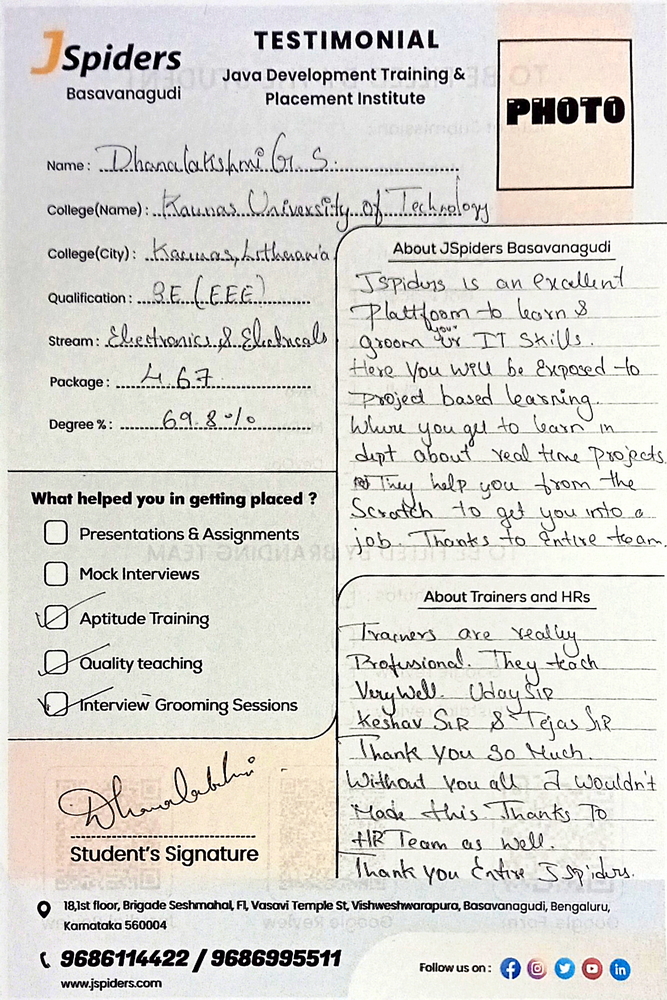 JSpiders
Basavanagudi
TESTIMONIAL
Java Development Training &
Placement Institute
PHOTO
Name : Dhanalakshmi G. S.
College(Name) : Kaunas University of Technology
College(City) : Kaunas, Lithuania
Qualification : B.E (EEE)
Stream : Electronics & Electricals
Package : 4.67
Degree % : 69.8%
What helped you in getting placed ?
Presentations & Assignments
Mock Interviews
Aptitude Training
Quality teaching
Interview Grooming Sessions
Dhanalakshmi
Student's Signature
About JSpiders Basavanagudi
Jspiders is an excellent
Plattfoom to learn &
groom your IT Skills.
Here You will be Exposed to
project based learning.
Where you get to learn in
dept about real time projects.
They help you from the
Scratch to get you into a
job. Thanks to Entire team.
About Trainers and HRs
Trainers are really
Professional. They teach
Very Well. Uday SIR
Keshav SIR & Tejas SIR
Thank you so Much.
Without you all I wouldn't
Made this. Thanks To
HR Team as well.
Thank you Entire J Spiders.
18,1st floor, Brigade Seshmahal, Fl, Vasavi Temple St, Vishweshwarapura, Basavanagudi, Bengaluru,
Karnataka 560004
9686114422 / 9686995511
www.jspiders.com
Follow us on :